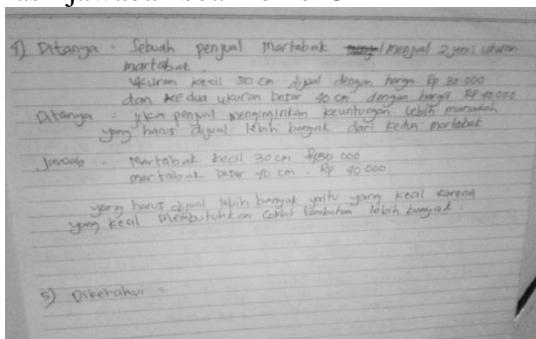 4) Ditanya : Sebuah penjual martabak menjual 2 jenis ukuran
martabak.
Ukuran kecil 30 cm dijual dengan harga Rp 30 000
dan kedua ukuran besar 40 cm dengan harga Rp 40.000
Ditanya = jika penjual menginginkan keuntungan lebih manakah
yang harus dijual lebih banyak dari kedua martabak
Jawab . Martabak kecil 30 cm Rp 30 000
martabak besar 40 cm . Rp 40.000
yang harus dijual lebih banyak yaitu yang kecil karena
yang kecil membutuhkan lebih banyak.
5) Diketahui =